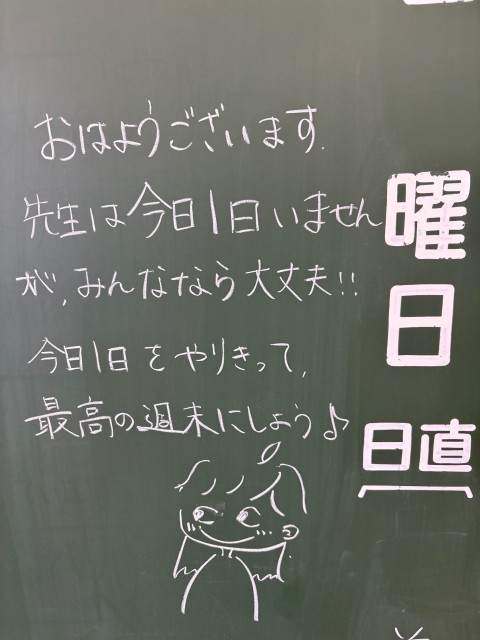 おはようございます.
先生は今日1日いません
が,みんななら大丈夫!!
今日1日をやりきって,
最高の週末にしょう♪
曜日
日直